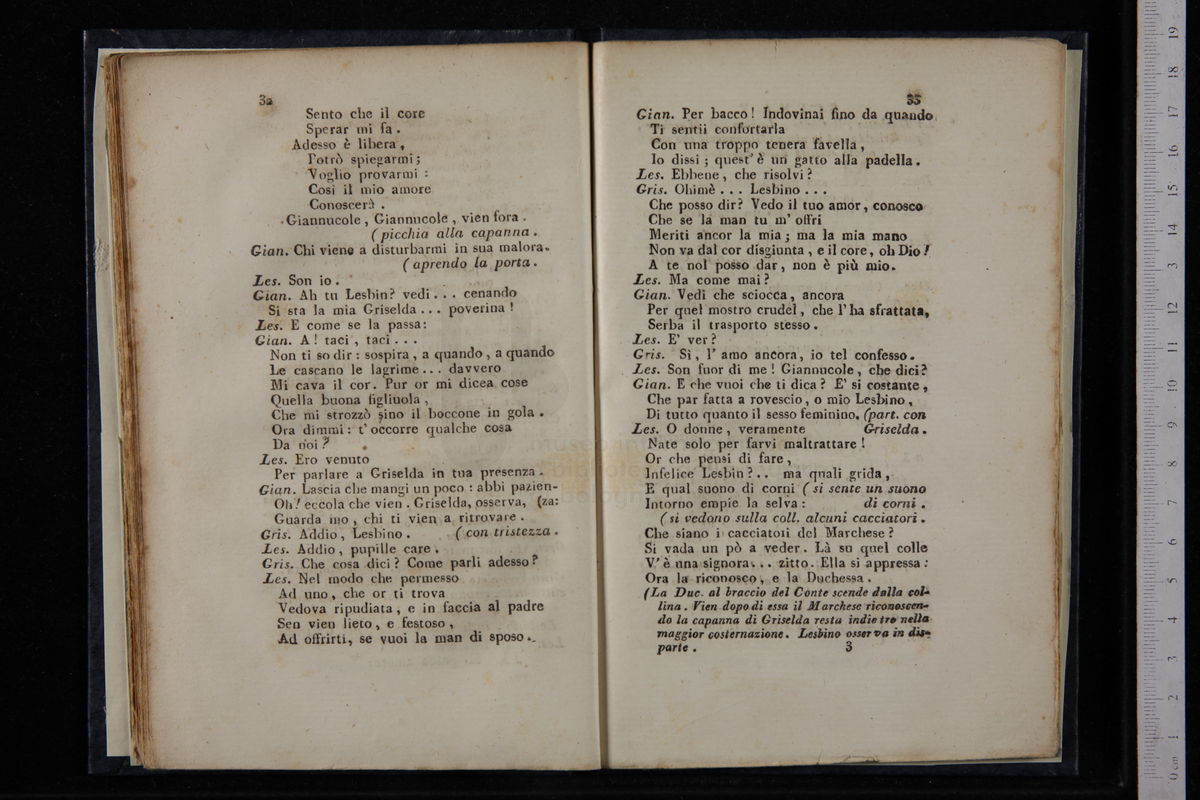 32
Sento che il core
Sperar mi fa.
Adesso è libera,
Potrò spiegarmi;
Voglio provarmi:
Così il mio amore
Conoscerà.
Giannucole, Giannucole, vien fora.
(picchia alla capanna.
Gian. Chi viene a disturbarmi in sua malora.
(aprendo la porta.
Les. Son io.
Gian. Ah tu Lesbin? vedi... cenando
Si sta la mia Griselda... poverina!
Les. E come se la passa:
Gian. A! taci, taci...
Non ti so dir: sospira, a quando, a quando
Le cascano le lagrime... davvero
Mi cava il cor. Pur or mi dicea cose
Quella buona figliuola,
Che mi strozzò sino il boccone in gola.
Ora dimmi: t'occorre qualche cosa
Da noi?
Les. Ero venuto
Per parlare a Griselda in tua presenza.
Gian. Lascia che mangi un poco: abbi pazien-
Oh! eccola che vien. Griselda, osserva, (za:
Guarda mo, chi ti vien a ritrovare.
Gris. Addio, Lesbino. (con tristezza.
Les. Addio, pupille care.
Gris. Che cosa dici? Come parli adesso?
Les. Nel modo che permesso
Ad uno, che or ti trova
Vedova ripudiata, e in faccia al padre
Sen vien lieto, e festoso,
Ad offrirti, se vuoi la man di sposo.
33
Gian. Per bacco! Indovinai fino da quando
Ti sentii confortarla
Con una troppo tenera favella,
Io dissi; quest' è un gatto alla padella.
Les. Ebbene, che risolvi?
Gris. Ohimè... Lesbino...
Che posso dir? Vedo il tuo amor, conosco
Che se la man tu m' offri
Meriti ancor la mia; ma la mia mano
Non va dal cor disgiunta, e il core, oh Dio!
A te nol posso dar, non è più mio.
Les. Ma come mai?
Gian. Vedi che sciocca, ancora
Per quel mostro crudel, che l'ha sfrattata,
Serba il trasporto stesso.
Les. E' ver?
Gris. Si, l' amo ancora, io tel confesso.
Les. Son fuor di me! Giannucole, che dici?
Gian. E che vuoi che ti dica? E' si costante,
Che par fatta a rovescio, o mio Lesbino,
Di tutto quanto il sesso feminino. (part. con
Les. O donne, veramente Griselda.
Nate solo per farvi maltrattare!
Or che pensi di fare,
Infelice Lesbin?.. ma quali grida,
E qual suono di corni (si sente un suono
Intorno empie la selva: di corni.
(si vedono sulla coll. alcuni cacciatori.
Che siano i cacciatori del Marchese?
Si vada un pò a veder. Là su quel colle
V' è una signora... zitto. Ella si appressa:
Ora la riconosco, e la Duchessa.
(La Duc. al braccio del Conte scende dalla col-
lina. Vien dopo di essa il Marchese riconoscen-
do la capanna di Griselda resta indietro nella
maggior costernazione. Lesbino osserva in dis-
parte. 3